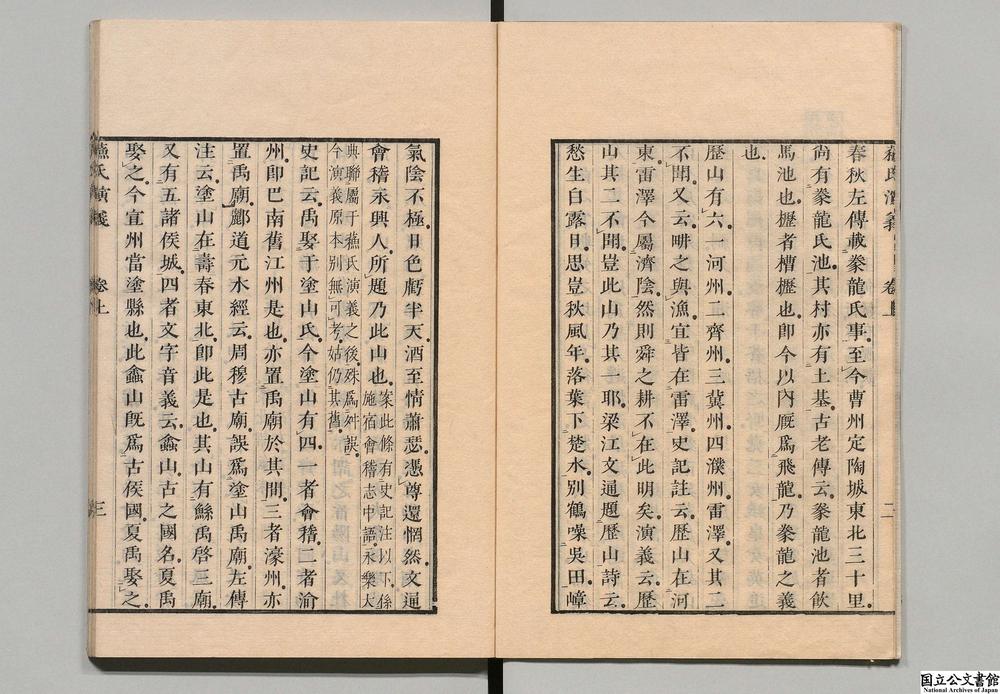 春秋左傳載豢龍氏事。至今曹州定陶城東北三十里。
尚有豢龍氏池。其村亦有土基。古老傳云。豢龍池者飲
馬池也。櫪者槽櫪也。即今以内廐爲飛龍。乃豢龍之義
也。
歷山有六。一河州。二齊州。三冀州。四濮州。雷澤。又其二
不聞。又云。畊之與漁宜皆在雷澤。史記註云。歷山在河
東。雷澤今屬濟陰。然則舜之耕不在此明矣。演義云。歷
山其二不聞。豈此山乃其一耶。梁江文通題歷山詩云。
愁生白露日。思豈秋風年。落葉下楚水。別鶴噪吳田。嶂
蘇氏演義 卷上 二
氣陰不極。日色虧半天。酒至情蕭瑟。憑尊還惘然。文通
會稽永興人。所題乃此山也。案此條有史記注以下。係
施宿會稽志中語。永樂大
典聯屬于蘇氏演義之後。殊爲舛誤。
今演義原本別無可考。姑仍其舊。
史記云。禹娶于塗山氏。今塗山有四。一者會稽。二者渝
州。即巴南舊江州是也。亦置禹廟於其間。三者濠州。亦
置禹廟。酈道元水經云。周穆古廟。誤爲塗山禹廟。左傳
注云。塗山在壽春東北。即此是也。其山有鯀禹啓三廟。
又有五諸侯城。四者文字音義云。嵞山。古之國名。夏禹
娶之。今宣州當塗縣也。此嵞山既爲古侯國。夏禹娶之。
蘇氏演義 卷上 三
国立公文書館
National Archives of Japan